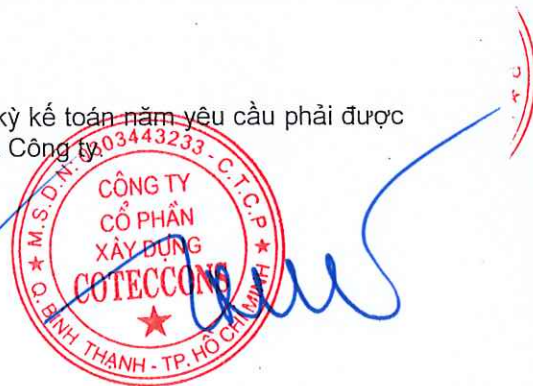 kỳ kế toán năm yêu cầu phải được
Công ty.
M.S.D.N: 0303443233 - C.T.C.P
CÔNG TY
CỔ PHẦN
XÂY DỰNG
COTECCONS
Q. BÌNH THẠNH - TP. HỒ CHÍ MINH